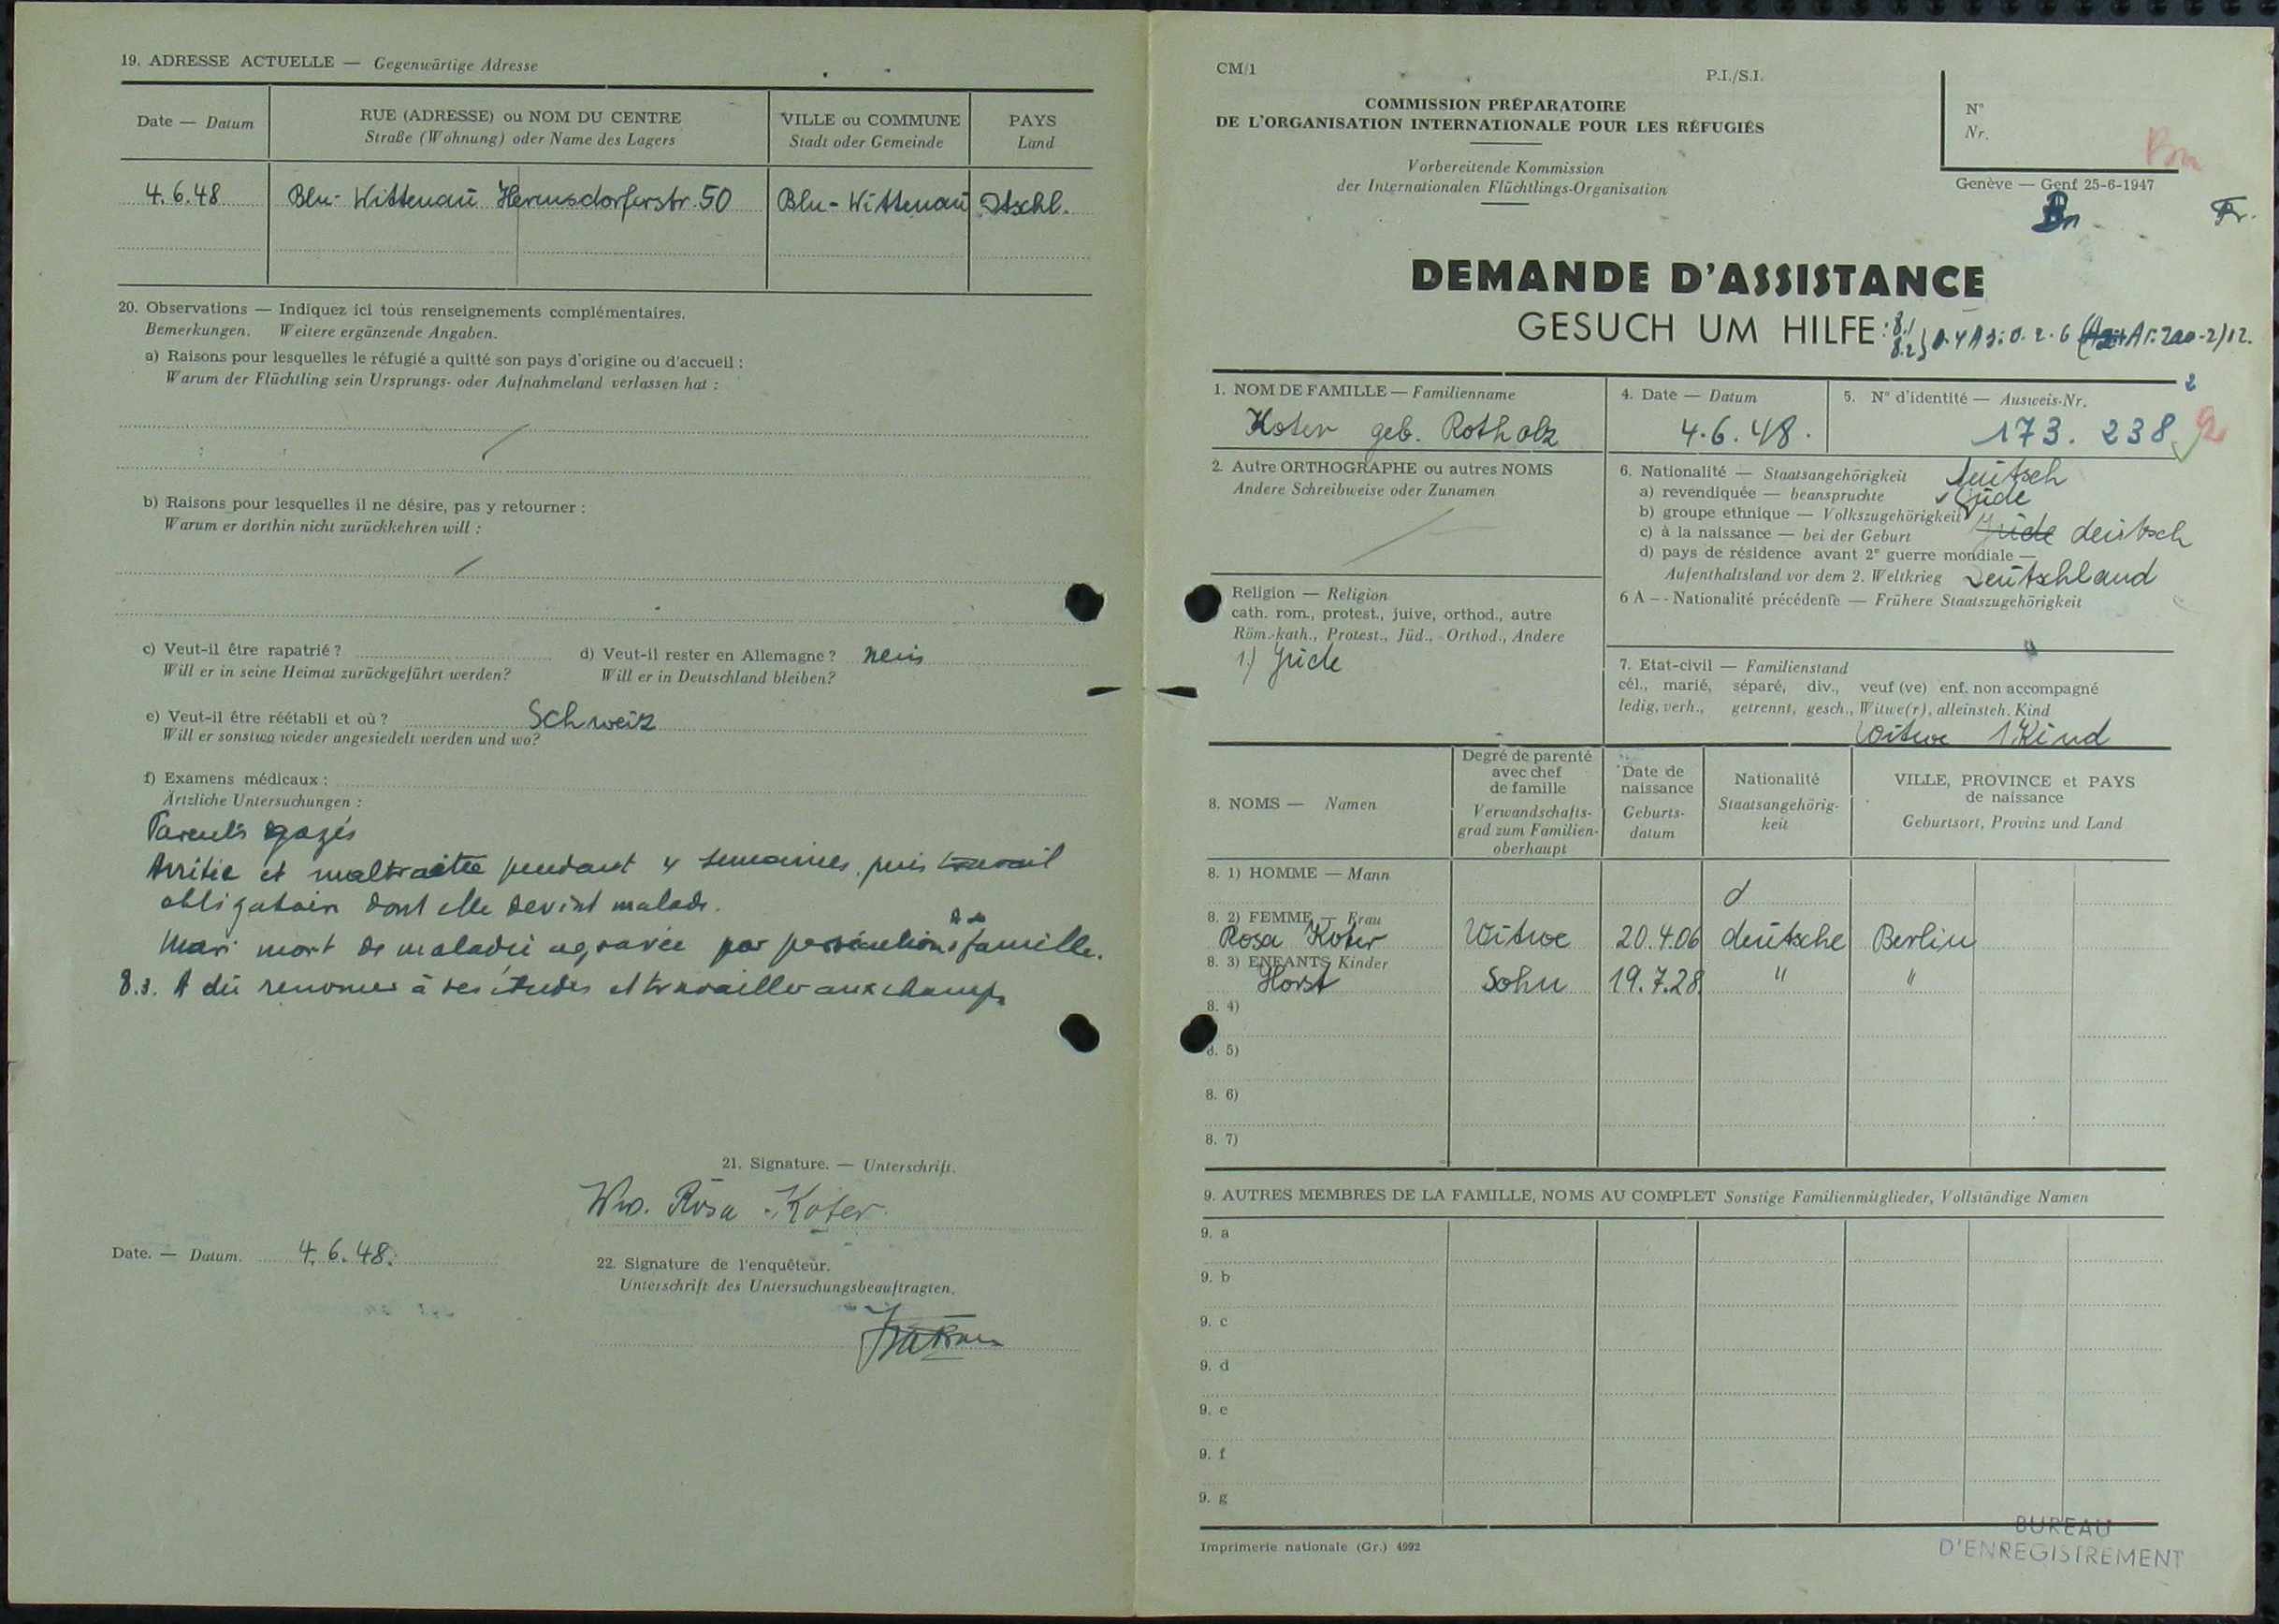 19. ADRESSE ACTUELLE — Gegenwärtige Adresse
Date — Datum
RUE (ADRESSE) ou NOM DU CENTRE
Straße (Wohnung) oder Name des Lagers
VILLE ou COMMUNE
Stadt oder Gemeinde
PAYS
Land
4.6.48 Bln- Wittenau Hermsdorferstr. 50 Bln-Wittenau Dtschl.
20. Observations — Indiquez ici tous renseignements complémentaires.
Bemerkungen. Weitere ergänzende Angaben.
a) Raisons pour lesquelles le réfugié a quitté son pays d'origine ou d'accueil :
Warum der Flüchtling sein Ursprungs- oder Aufnahmeland verlassen hat :
b) Raisons pour lesquelles il ne désire, pas y retourner :
Warum er dorthin nicht zurückkehren will :
c) Veut-il être rapatrié ?
Will er in seine Heimat zurückgeführt werden?
d) Veut-il rester en Allemagne ? nein
Will er in Deutschland bleiben?
e) Veut-il être réétabli et où ? Schweiz
Will er sonstwo wieder angesiedelt werden und wo?
f) Examens médicaux :
Ärtzliche Untersuchungen :
Parents gazés
Arritée et maltraitée pendant 4 semaines, puis travail
obligatoire dont elle devint malade.
Mari mort de maladie agravée par persécutions de famille.
8.3. A dû renoncer à ses études et travailler aux champs
21. Signature. — Unterschrift.
Ww. Rosa Koter
Date. — Datum. 4.6.48.
22. Signature de l'enquêteur.
Unterschrift des Untersuchungsbeauftragten.
CM/1
P.I./S.I.
COMMISSION PRÉPARATOIRE
DE L'ORGANISATION INTERNATIONALE POUR LES RÉFUGIÉS
Vorbereitende Kommission
der Internationalen Flüchtlings-Organisation
N°
Nr.
Bn
Genève — Genf 25-6-1947
Bn Fr.
DEMANDE D'ASSISTANCE
GESUCH UM HILFE
1. NOM DE FAMILLE — Familienname
Koter geb. Rotholz
4. Date — Datum
4.6.48.
5. N° d'identité — Ausweis-Nr.
173.238
2. Autre ORTHOGRAPHE ou autres NOMS
Andere Schreibweise oder Zunamen
6. Nationalité — Staatsangehörigkeit deutsch
a) revendiquée — beanspruchte
b) groupe ethnique — Volkszugehörigkeit Jüde
c) à la naissance — bei der Geburt Jüde deutsch
d) pays de résidence avant 2e guerre mondiale —
Aufenthaltsland vor dem 2. Weltkrieg Deutschland
6 A — Nationalité précédente — Frühere Staatszugehörigkeit
Religion — Religion
cath. rom., protest., juive, orthod., autre
Röm.-kath., Protest., Jüd., Orthod., Andere
1) Jüde
7. Etat-civil — Familienstand
cél., marié, séparé, div., veuf (ve) enf. non accompagné
ledig, verh., getrennt, gesch., Witwe(r), alleinsteh. Kind
Witwe 1 Kind
8. NOMS — Namen
Degré de parenté
avec chef
de famille
Verwandschafts-
grad zum Familien-
oberhaupt
Date de
naissance
Geburts-
datum
Nationalité
Staatsangehörig-
keit
VILLE, PROVINCE et PAYS
de naissance
Geburtsort, Provinz und Land
8. 1) HOMME — Mann
8. 2) FEMME — Frau
Rosa Koter Witwe 20.4.06 deutsche Berlin
8. 3) ENFANTS Kinder
Horst Sohn 19.7.28. " "
8. 4)
8. 5)
8. 6)
8. 7)
9. AUTRES MEMBRES DE LA FAMILLE, NOMS AU COMPLET Sonstige Familienmitglieder, Vollständige Namen
9. a
9. b
9. c
9. d
9. e
9. f
9. g
Imprimerie nationale (Gr.) 4992
BUREAU
D'ENREGISTREMENT